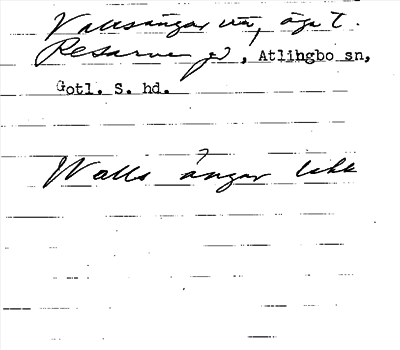 Vallsängar vn, äga t.
Reserve gd, Atlingbo sn,
Gotl. S. hd.
Walls ängar